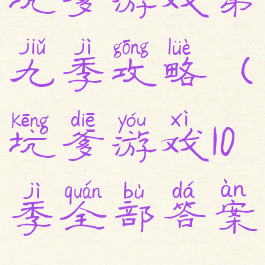 坑爹游戏第
jiǔ jì gōng lüè
九季攻略（
kēng diē yóu xì
坑爹游戏10
jì quán bù dá àn
季全部答案